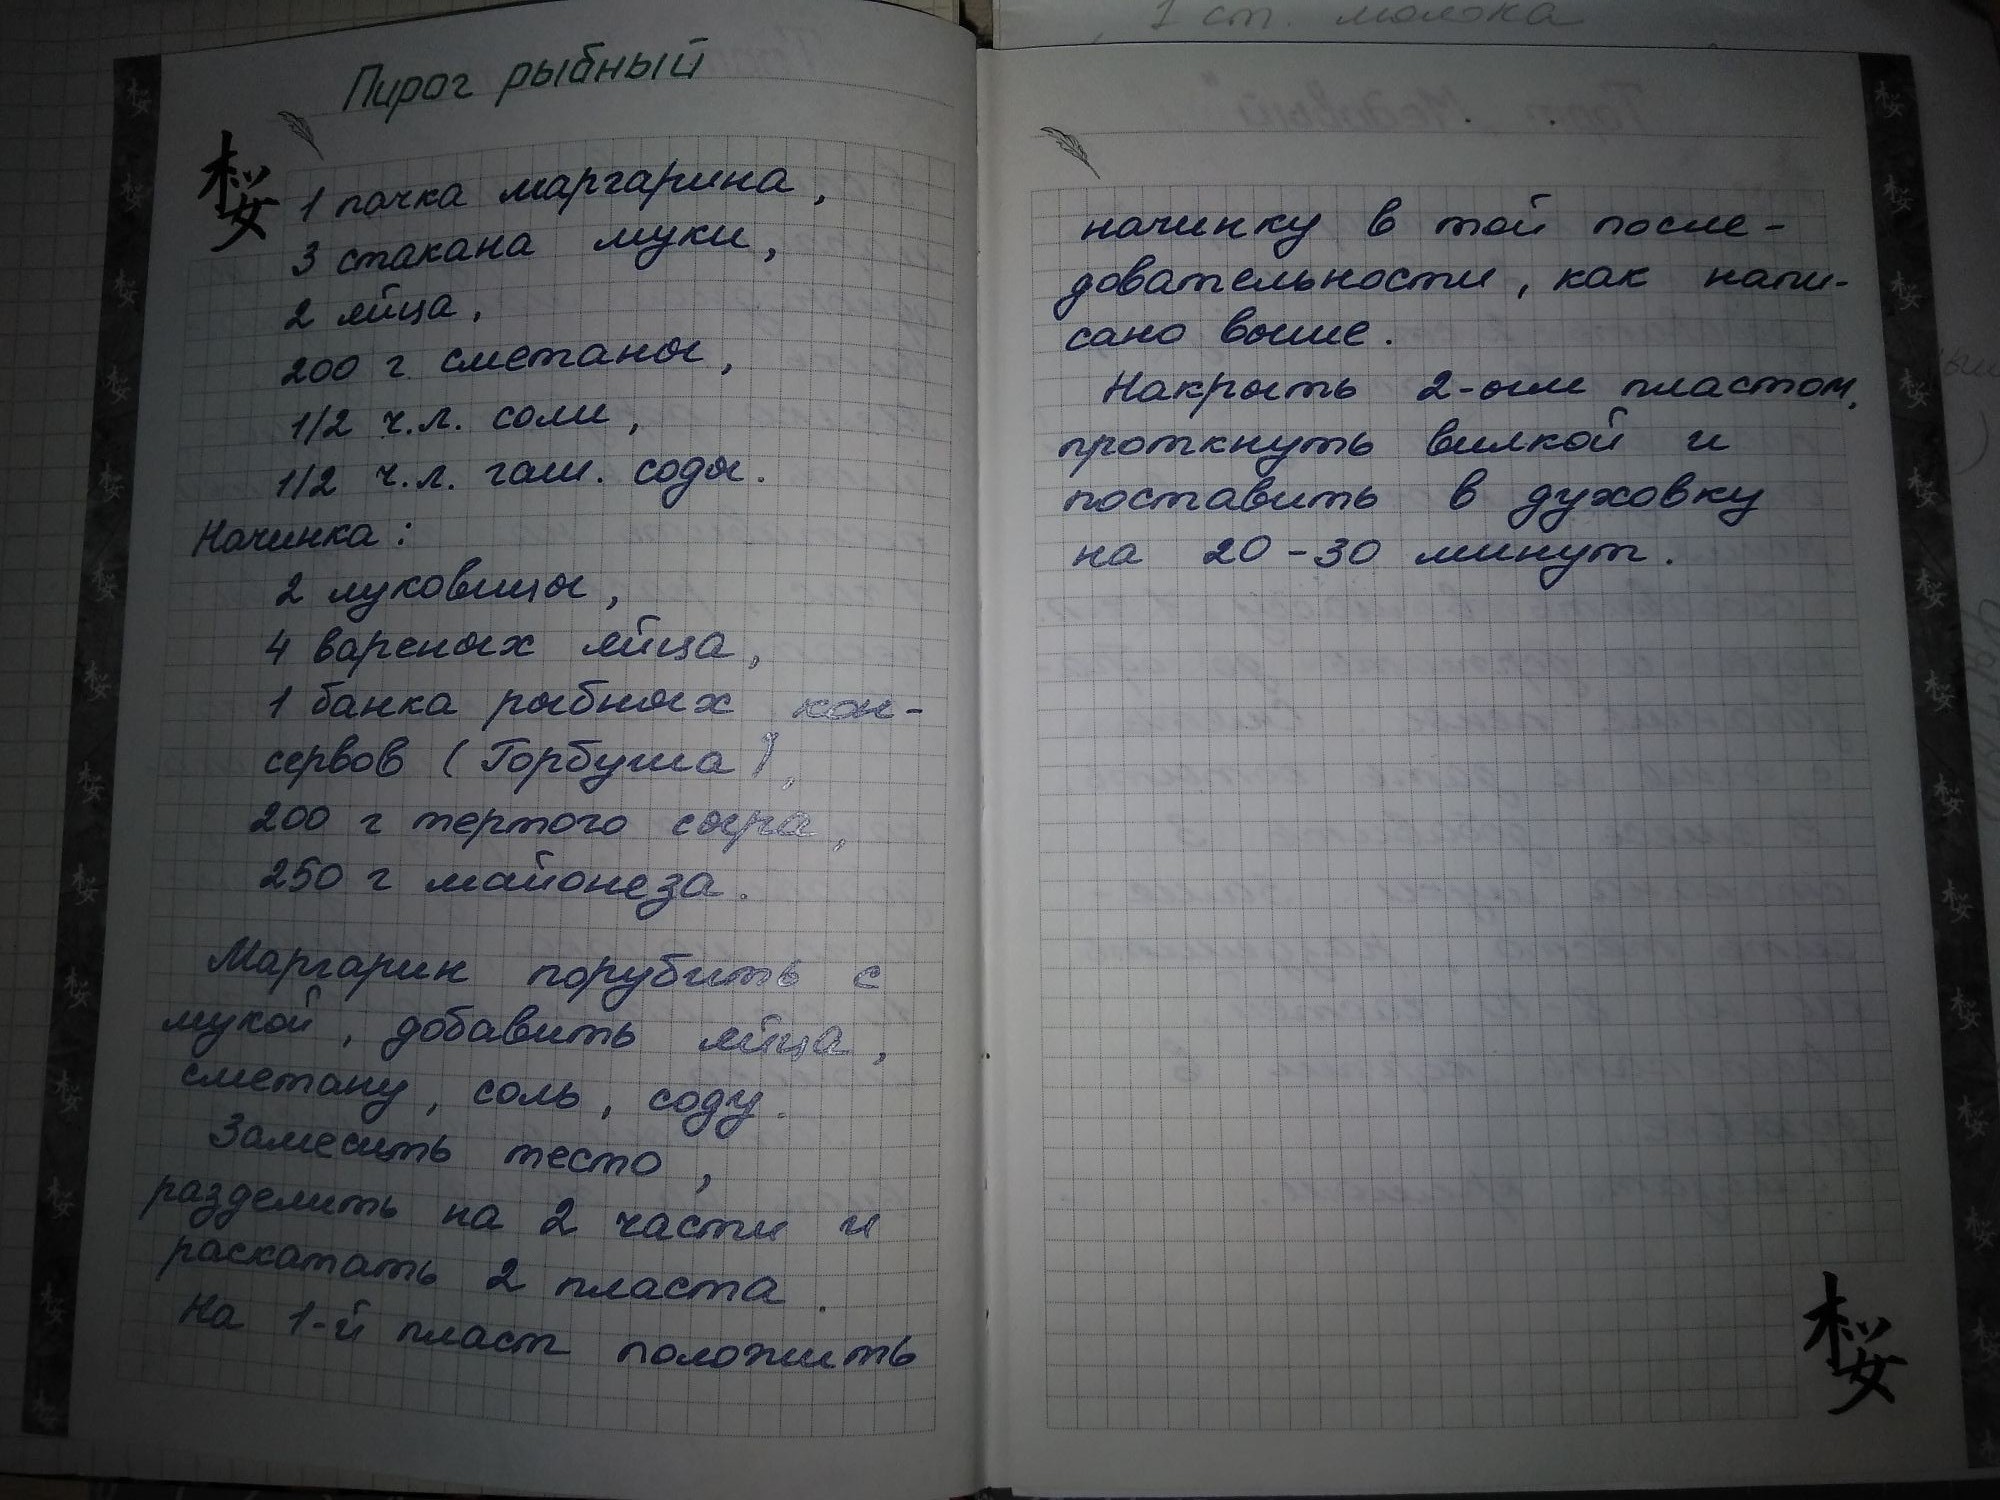 Пирог рыбный
桜
1 пачка маргарина,
3 стакана муки,
2 яйца,
200 г сметаны,
1/2 ч.л. соли,
1/2 ч.л. гаш. соды.
Начинка:
2 луковицы,
4 вареных яйца,
1 банка рыбных кон-
сервов (Горбуша),
200 г тертого сыра,
250 г майонеза.
Маргарин порубить с
мукой, добавить яйца,
сметану, соль, соду.
Замесить тесто,
разделить на 2 части и
раскатать 2 пласта.
На 1-й пласт положить
1 ст. молока
начинку в той после-
довательности, как напи-
сано выше.
Накрыть 2-ым пластом,
проткнуть вилкой и
поставить в духовку
на 20-30 минут.
桜